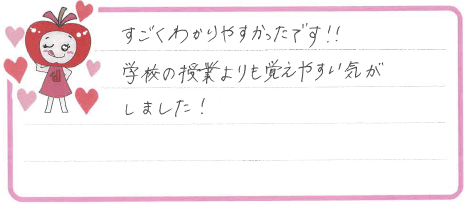 すごくわかりやすかったです!!
学校の授業よりも覚えやすい気が
しました!